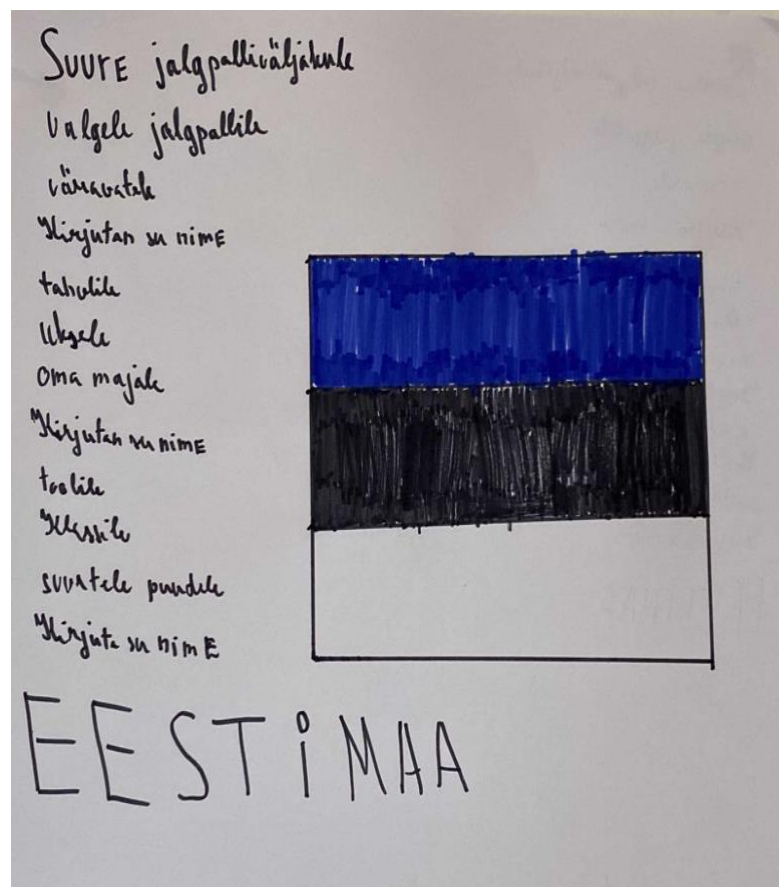 SUURE jalgpalliväljakule
Valgele jalgpallile
väravatele
Kirjutan su nimE
tahvlile
Uksele
oma majale
Kirjutan su nimE
toolile
Klassile
suurtele puudele
Kirjuta su nimE
EESTiMAA